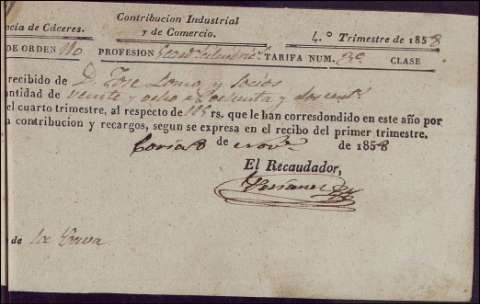 Contribucion Industrial
ncia de Cáceres. y de Comercio. 4.º Trimestre de 1858
DE ORDEN 110 PROFESION TARIFA NUM. CLASE
recibido de D. Jose Lomo y Socios
antidad de veinte y ocho r.s ochenta y dos cent.s
el cuarto trimestre, al respecto de rs. que le han corresdondido en este año por
a contribucion y recargos, segun se expresa en el recibo del primer trimestre.
Coria 8 de Nov.e de 1858
El Recaudador,
de la